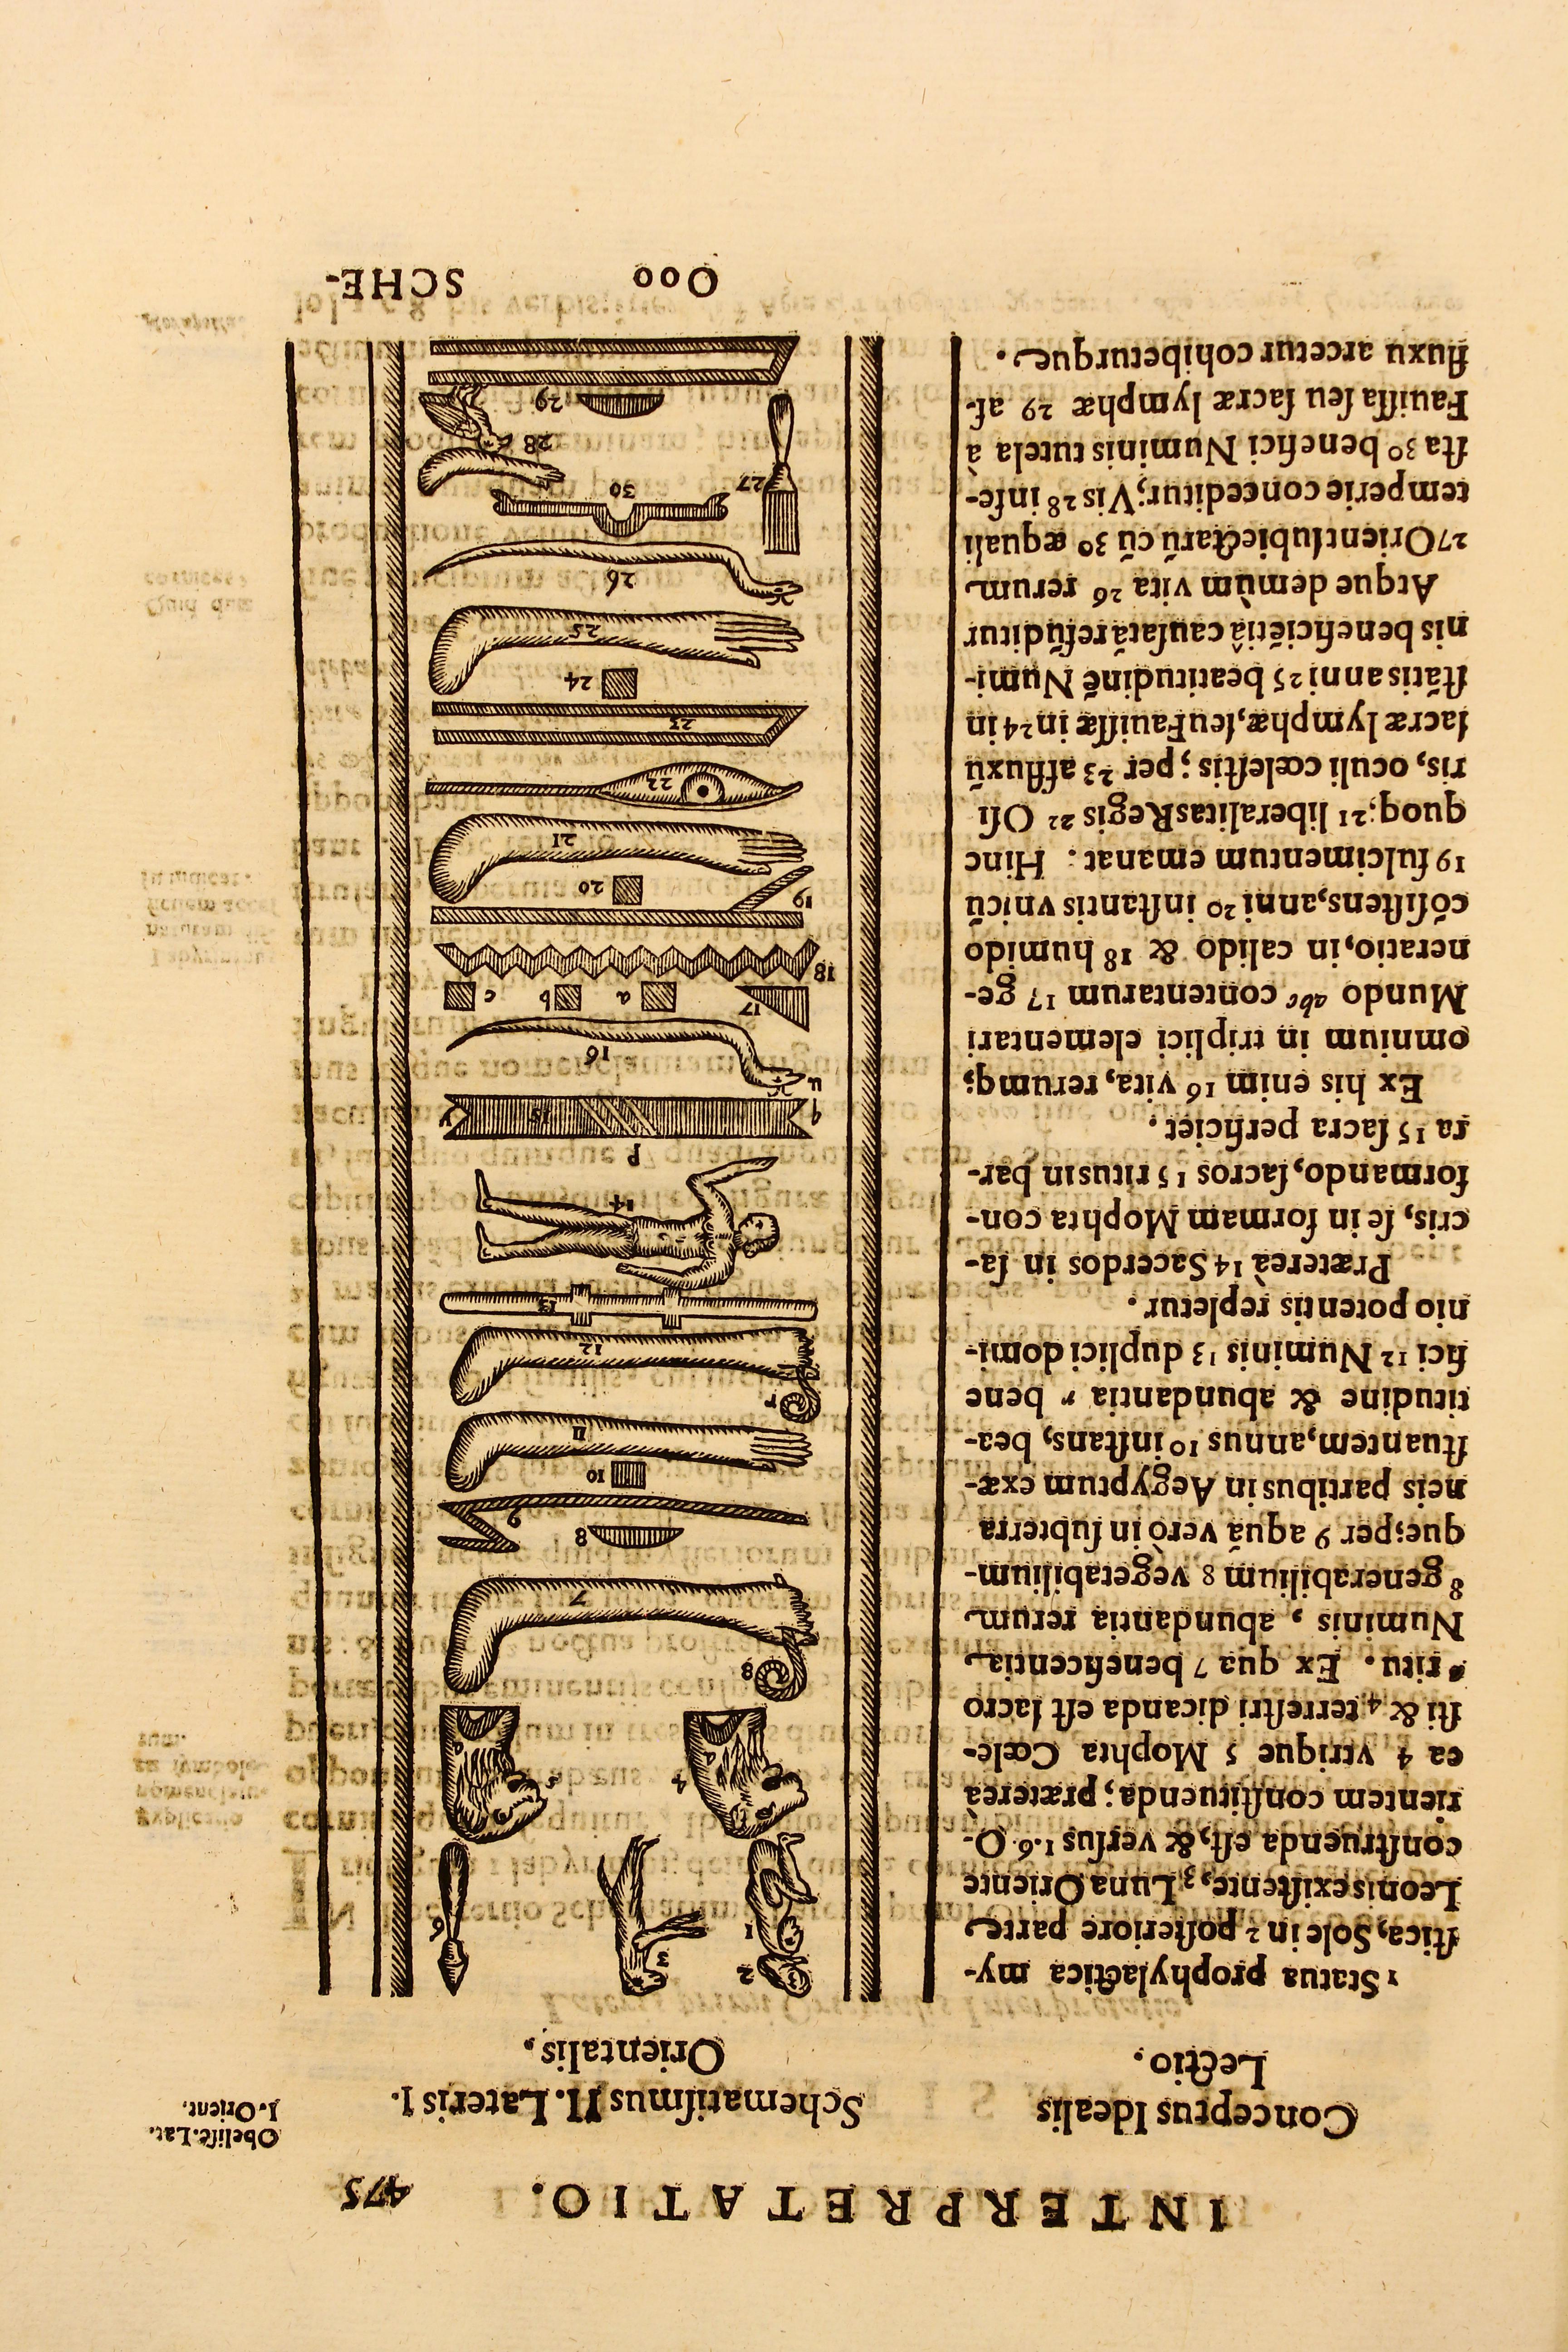 INTERPRETATIO. 475
Obeliſc. Lat.
I. Orient.
Conceptus Idealis
Lectio.
1 Statua prophylactica my-
ſtica, Sole in 2 poſteriore parte
Leonis exiſtente, 3 Luna Oriente
conſtruenda eſt, & verſus 1. 6 O-
rientem conſtituenda; præterea
ea 4 vtrique 5 Mophta Cœle-
ſti & 4 terreſtri dicanda eſt ſacro
ritu. Ex qua 7 beneficentia
Numinis, abundantia rerum
8 generabilium 8 vegetabilium-
que; per 9 aquā verò in ſubterra
neis partibus in Aegyptum exæ-
ſtuantem, annus 10 inſtans, bea-
titudine & abundantia r bene
fici 12 Numinis 13 duplici domi-
nio potentis repletur.
Prætereà 14 Sacerdos in ſa-
cris, ſe in formam Mophta con-
formando, ſacros 15 ritus in bar-
ra 15 ſacra perficiet.
Ex his enim 16 vita, rerumq;
omnium in triplici elementari
Mundo abc contentarum 17 ge-
neratio, in calido & 18 humido
cōſiſtens, anni 20 inſtantis vnicū
19 fulcimentum emanat. Hinc
quoq; 21 liberalitas Regis 22 Oſi
ris, oculi cœleſtis; per 23 affluxū
ſacræ lymphæ, ſeu Fauiſſæ in 24 in
ſtātis anni 25 beatitudinē Numi-
nis beneficiētiâ cauſatā refūditur
Atque demùm vita 26 rerum
27 Orienti ſubiectarū cū 30 æquali
temperie conceditur; Vis 28 infe-
ſta 30 benefici Numinis tutela à
Fauiſſa ſeu ſacræ lymphæ 29 af-
fluxu arcetur cohibeturque.
Schematiſmus II. Lateris I.
Orientalis.
2
1
3
6
4
5
8
7
8
9
10
11
r
12
13
14
p
q 15 y
u
16
17 a b c
18
19
20
21
22
23
24
25
26
27 30 28
29
Ooo SCHE-